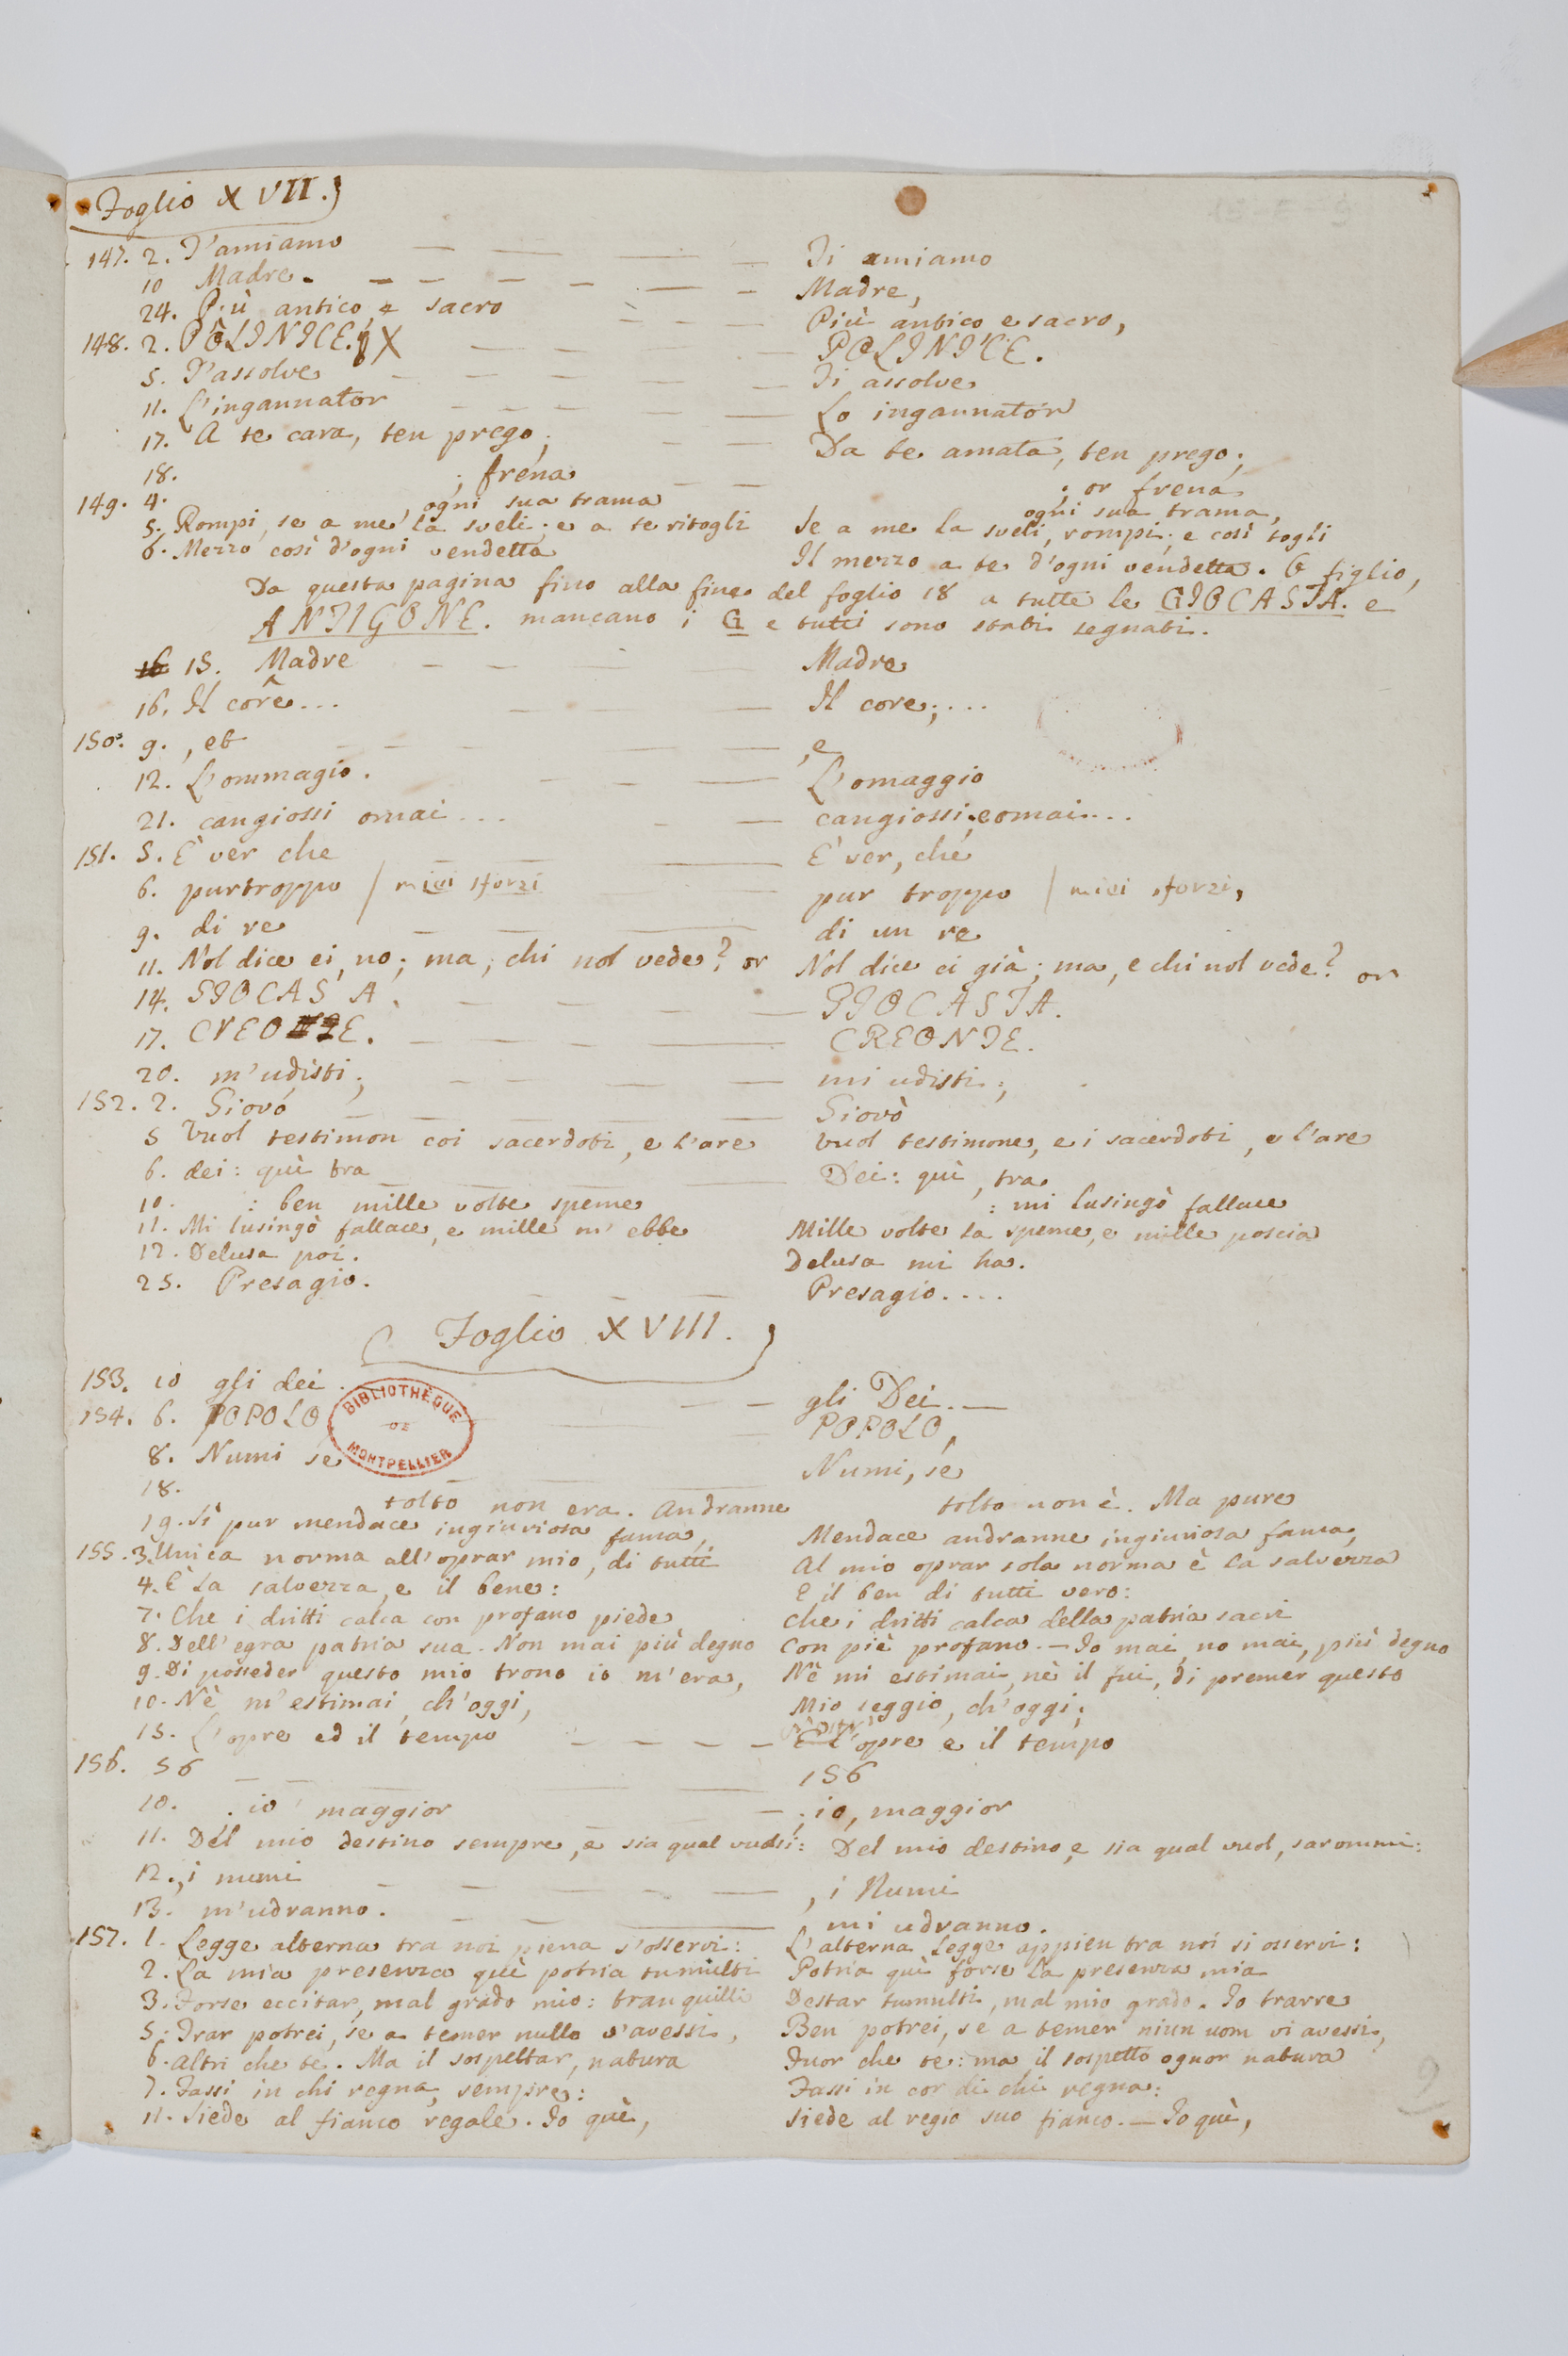 Foglio XVII.
147. 2. T'amiamo — — — — Ti amiamo
10 Madre. — — — — — — Madre,
24. Più antico, e sacro — — — Più antico e sacro,
148. 2. POLINICE. X — — — POLINICE.
5. T'assolve — — — — — Ti assolve
11. L'ingannator — — — — — Lo ingannator
17. A te cara, ten prego; — — Da te amata, ten prego;
18. ; frena — — ; or frena
149. 4. ogni sua trama ogni sua trama,
5. Rompi, se a me la sveli; e a te ritogli Se a me la sveli, rompi; e così togli
6. Mezzo così d'ogni vendetta Il mezzo a te d'ogni vendetta. O figlio,
Da questa pagina fino alla fine del foglio 18 a tutte le GIOCASTA. e
ANTIGONE. mancano i G e tutti sono stati segnati.
16 15. Madre — — — — Madre
16. Il core... — — — Il core;...
150. 9. , et — — — — , e
12. L'ommagio. — — — L'omaggio
21. cangiossi omai... — — cangiossi; e omai....
151. 5. È ver che — — — È ver, che
6. purtroppo / miei sforzi — — pur troppo / miei sforzi,
9. di re — — — di un re
11. Nol dice ei, no; ma, chi nol vede? or Nol dice ei già; ma, e chi nol vede? or
14. GIOCAS A. — — — — GIOCASTA.
17. CREO TE. — — — — CREONTE.
20. m'udisti; — — — — mi udisti;
152. 2. Giovó — — — Giovò
5 Vuol testimon coi sacerdoti, e l'are Vuol testimone, e i sacerdoti, e l'are
6. dei: quì tra — — — Dei: quì, tra
10. : ben mille volte speme : mi lusingò fallace
11. Mi lusingò fallace, e mille m'ebbe Mille volte la speme, e mille poscia
12. Delusa poi. Delusa mi ha.
25. Presagio. — — — Presagio....
Foglio XVIII.
153. 10 gli dei. — — gli Dei. —
154. 6. POPOLO — — POPOLO,
8. Numi se — — Numi, se
BIBLIOTHÈQUE DE MONTPELLIER
18. tolto non era. Andranne tolto non è. Ma pure
19. Sì pur mendace ingiuriosa fama, Mendace andranne ingiuriosa fama,
155. 3. Unica norma all'oprar mio, di tutti Al mio oprar sola norma è la salvezza
4. È la salvezza, e il bene: E il ben di tutti vero:
7. Che i dritti calca con profano piede Che i dritti calca della patria sacri
8. Dell'egra patria sua. Non mai più degno Con piè profano. — Io mai, no mai, più degno
9. Di posseder questo mio trono io m'era, Nè mi estimai, nè il fui, di premer questo
10. Nè m'estimai, ch'oggi, Mio seggio, ch'oggi;
15. L'opre ed il tempo — — — — E l'opre e il tempo
156. 56 — — — — 156
10. . io maggior — — ; io, maggior
11. Del mio destino sempre, e sia qual vuolsi: Del mio destino, e sia qual vuol, sarommi:
12. , i numi — — — — , i Numi
13. m'udranno. — — — mi udranno.
157. 1. Legge alterna tra noi piena s'osservi: L'alterna Legge appien tra noi si osservi:
2. La mia presenza quì potria tumulti Potria quì forse la presenza mia
3. Forse eccitar, mal grado mio: tranquilli Destar tumulti, mal mio grado. Io trarre
5. Trar potrei, se a temer nullo v'avessi, Ben potrei, se a temer niun uom vi avessi,
6. Altri che te. Ma il sospettar, natura Fuor che te: ma il sospetto ognor natura
7. Fassi in chi regna, sempre: Fassi in cor di chi regna:
11. Siede al fianco regale. Io quì, Siede al regio suo fianco. — Io quì,
9